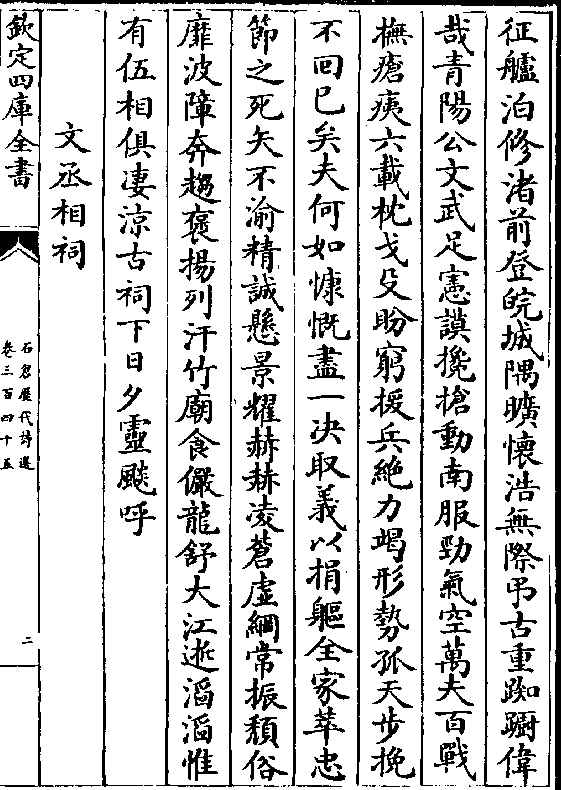 征艫泊修渚前登皖城隅曠懷浩無際弔古重踟躕偉
哉青陽公文武足憲謨攙搶動南服勁氣空萬夫百戰
撫瘡痍六載枕戈殳盼窮援兵絶力竭形勢孤天步挽
不囘已矣夫何如慷慨盡一决取義以捐軀全家萃忠
節之死矢不渝精誠懸景耀赫赫凌蒼虚綱常振頽俗
靡波障奔趨褒揚列汗竹廟食儼龍舒大江逝滔滔惟
有伍相俱凄凉古祠下日夕靈颷呼
文丞相祠
欽定四庫全書
石倉歷代詩選
卷三百四十五
二